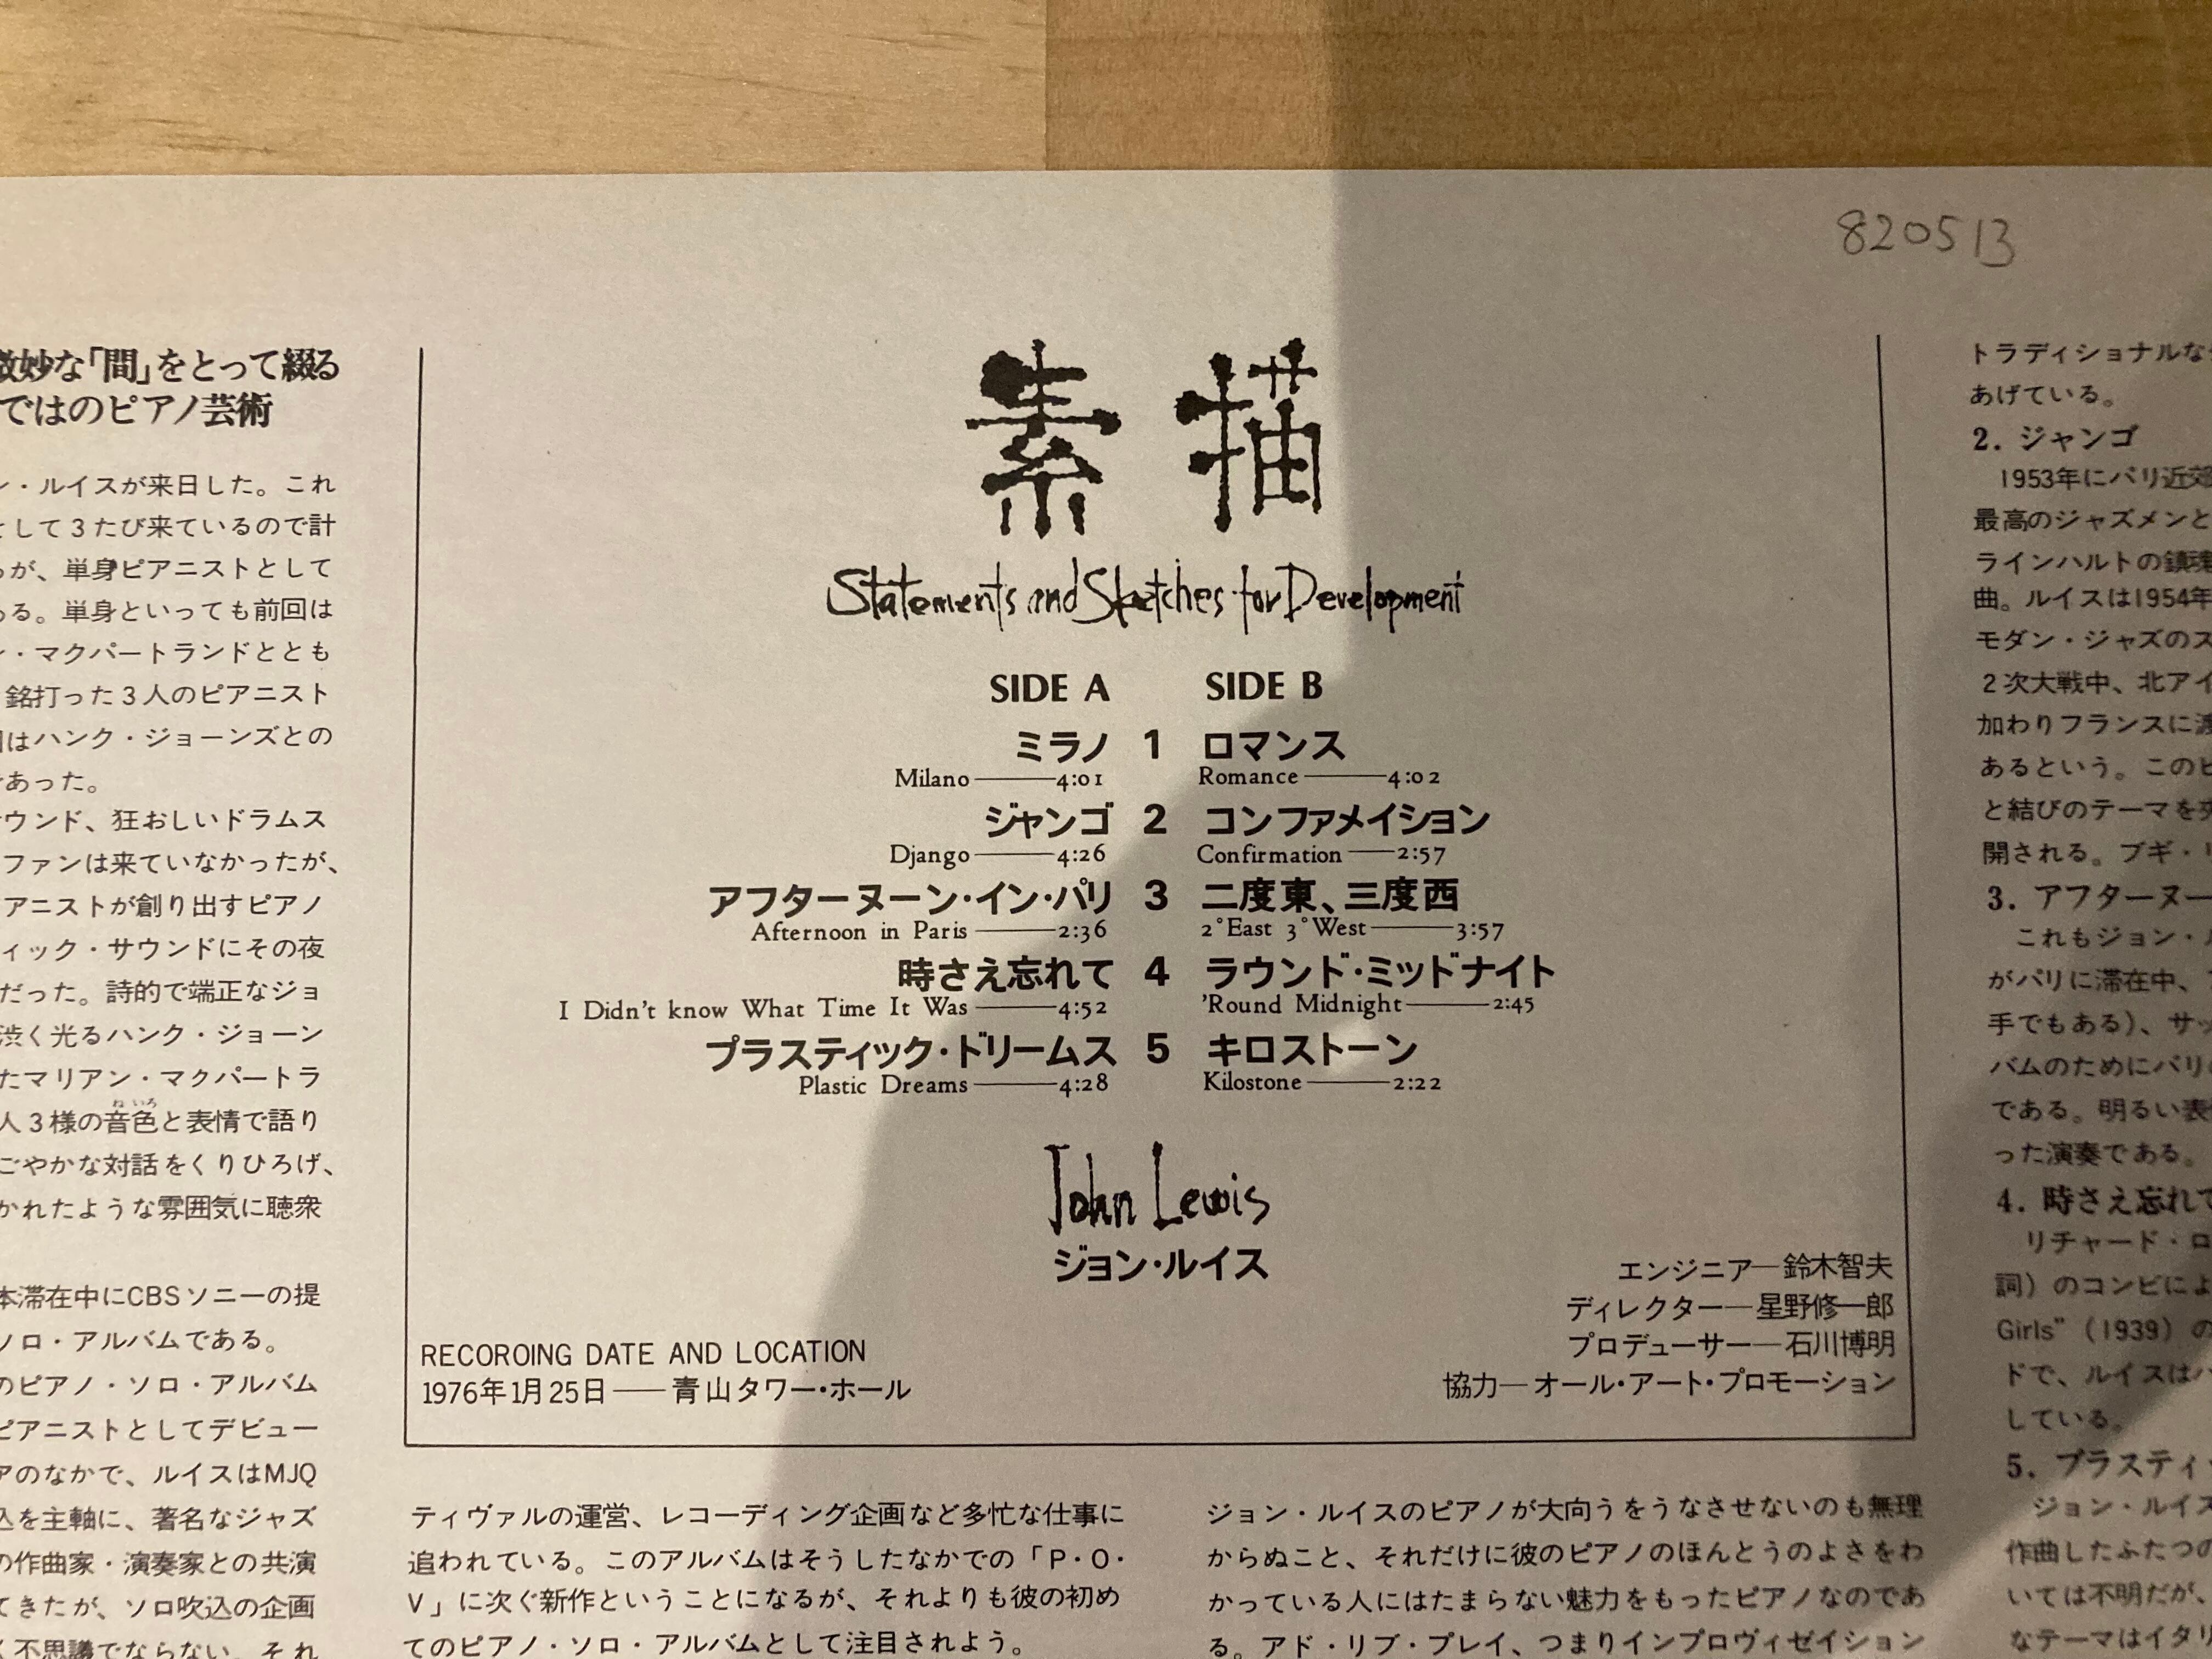 820513
微妙な「間」をとって綴る
ではのピアノ芸術
ン・ルイスが来日した。これ
として3たび来ているので計
が、単身ピアニストとして
ある。単身といっても前回は
・マクパートランドととも
銘打った3人のピアニスト
はハンク・ジョーンズとの
であった。
ウンド、狂おしいドラムス
ファンは来ていなかったが、
アニストが創り出すピアノ
ィック・サウンドにその夜
だった。詩的で端正なジョ
渋く光るハンク・ジョーン
たマリアン・マクパートラ
ねいろ
人3様の音色と表情で語り
ごやかな対話をくりひろげ、
かれたような雰囲気に聴衆
本滞在中にCBSソニーの提
ソロ・アルバムである。
のピアノ・ソロ・アルバム
ピアニストとしてデビュー
アのなかで、ルイスはMJQ
込を主軸に、著名なジャズ
の作曲家・演奏家との共演
てきたが、ソロ吹込の企画
不思議でならない。それ
素描
Statements and Sketches for Development
SIDE A SIDE B
ミラノ 1 ロマンス
Milano——4:01 Romance——4:02
ジャンゴ 2 コンファメイション
Django——4:26 Confirmation——2:57
アフターヌーン・イン・パリ 3 二度東、三度西
Afternoon in Paris——2:36 2°East 3°West——3:57
時さえ忘れて 4 ラウンド・ミッドナイト
I Didn't know What Time It Was——4:52 'Round Midnight——2:45
プラスティック・ドリームス 5 キロストーン
Plastic Dreams——4:28 Kilostone——2:22
John Lewis
ジョン・ルイス
エンジニア—鈴木智夫
ディレクター—星野修一郎
プロデューサー—石川博明
協力—オール・アート・プロモーション
RECOROING DATE AND LOCATION
1976年1月25日——青山タワー・ホール
ティヴァルの運営、レコーディング企画など多忙な仕事に
追われている。このアルバムはそうしたなかでの「P・O・
V」に次ぐ新作ということになるが、それよりも彼の初め
てのピアノ・ソロ・アルバムとして注目されよう。
ジョン・ルイスのピアノが大向うをうなさせないのも無理
からぬこと、それだけに彼のピアノのほんとうのよさをわ
かっている人にはたまらない魅力をもったピアノなのであ
る。アド・リブ・プレイ、つまりインプロヴィゼイション
トラディショナルな
あげている。
2. ジャンゴ
1953年にパリ近郊
最高のジャズメンと
ラインハルトの鎮魂
曲。ルイスは1954年
モダン・ジャズのス
2次大戦中、北アイ
加わりフランスに渡
あるという。このピ
と結びのテーマを
開される。ブギ・
3. アフターヌー
これもジョン・
がパリに滞在中、
手でもある）、サッ
バムのためにパリ
である。明るい表
った演奏である。
4. 時さえ忘れて
リチャード・ロ
詞）のコンビによ
Girls”（1939）の
ドで、ルイスは
している。
5. プラスティ
ジョン・ルイス
作曲したふたつの
いては不明だが、
なテーマはイタリ